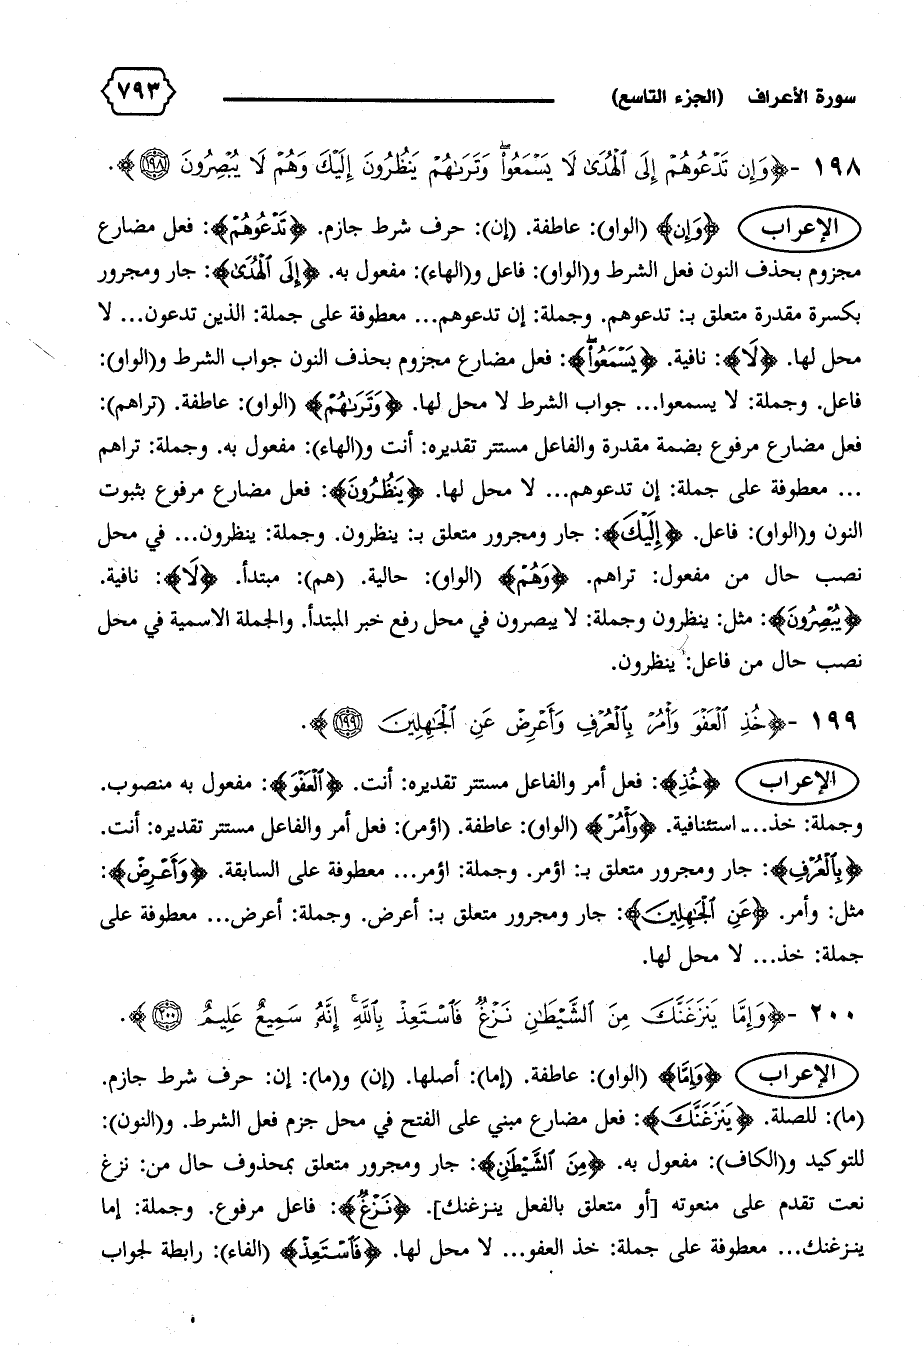 سورة الأعراف (الجزء التاسع) ٧٩٣
١٩٨ - ﴿وَإِن تَدْعُوهُمْ إِلَى ٱلْهُدَىٰ لَا يَسْمَعُوا۟ ۖ وَتَرَىٰهُمْ يَنظُرُونَ إِلَيْكَ وَهُمْ لَا يُبْصِرُونَ ١٩٨﴾.
الإعراب ﴿وَإِن﴾ (الواو): عاطفة. (إن): حرف شرط جازم. ﴿تَدْعُوهُمْ﴾: فعل مضارع
مجزوم بحذف النون فعل الشرط و(الواو): فاعل و(الهاء): مفعول به. ﴿إِلَى ٱلْهُدَىٰ﴾: جار ومجرور
بكسرة مقدرة متعلق بـ: تدعوهم. وجملة: إن تدعوهم... معطوفة على جملة: الذين تدعون... لا
محل لها. ﴿لَا﴾: نافية. ﴿يَسْمَعُوا۟ ۖ﴾: فعل مضارع مجزوم بحذف النون جواب الشرط و(الواو):
فاعل. وجملة: لا يسمعوا... جواب الشرط لا محل لها. ﴿وَتَرَىٰهُمْ﴾ (الواو): عاطفة. (تراهم):
فعل مضارع مرفوع بضمة مقدرة والفاعل مستتر تقديره: أنت و(الهاء): مفعول به. وجملة: تراهم
... معطوفة على جملة: إن تدعوهم... لا محل لها. ﴿يَنظُرُونَ﴾: فعل مضارع مرفوع بثبوت
النون و(الواو): فاعل. ﴿إِلَيْكَ﴾: جار ومجرور متعلق بـ: ينظرون. وجملة: ينظرون... في محل
نصب حال من مفعول: تراهم. ﴿وَهُمْ﴾ (الواو): حالية. (هم): مبتدأ. ﴿لَا﴾: نافية.
﴿يُبْصِرُونَ﴾: مثل: ينظرون وجملة: لا يبصرون في محل رفع خبر المبتدأ. والجملة الاسمية في محل
نصب حال من فاعل: ينظرون.
١٩٩ - ﴿خُذِ ٱلْعَفْوَ وَأْمُرْ بِٱلْعُرْفِ وَأَعْرِضْ عَنِ ٱلْجَٰهِلِينَ ١٩٩﴾.
الإعراب ﴿خُذِ﴾: فعل أمر والفاعل مستتر تقديره: أنت. ﴿ٱلْعَفْوَ﴾: مفعول به منصوب.
وجملة: خذ... استئنافية. ﴿وَأْمُرْ﴾ (الواو): عاطفة. (اؤمر): فعل أمر والفاعل مستتر تقديره: أنت.
﴿بِٱلْعُرْفِ﴾: جار ومجرور متعلق بـ: اؤمر. وجملة: اؤمر... معطوفة على السابقة. ﴿وَأَعْرِضْ﴾:
مثل: وأمر. ﴿عَنِ ٱلْجَٰهِلِينَ﴾: جار ومجرور متعلق بـ: أعرض. وجملة: أعرض... معطوفة على
جملة: خذ... لا محل لها.
٢٠٠ - ﴿وَإِمَّا يَنزَغَنَّكَ مِنَ ٱلشَّيْطَٰنِ نَزْغٌ فَٱسْتَعِذْ بِٱللَّهِ ۚ إِنَّهُۥ سَمِيعٌ عَلِيمٌ ٢٠٠﴾.
الإعراب ﴿وَإِمَّا﴾ (الواو): عاطفة. (إما): أصلها. (إن) و(ما): إن: حرف شرط جازم.
(ما): للصلة. ﴿يَنزَغَنَّكَ﴾: فعل مضارع مبني على الفتح في محل جزم فعل الشرط. و(النون):
للتوكيد و(الكاف): مفعول به. ﴿مِنَ ٱلشَّيْطَٰنِ﴾: جار ومجرور متعلق بمحذوف حال من: نزغ
نعت تقدم على منعوته [أو متعلق بالفعل ينزغنك]. ﴿نَزْغٌ﴾: فاعل مرفوع. وجملة: إما
ينزغنك... معطوفة على جملة: خذ العفو... لا محل لها. ﴿فَٱسْتَعِذْ﴾ (الفاء): رابطة لجواب